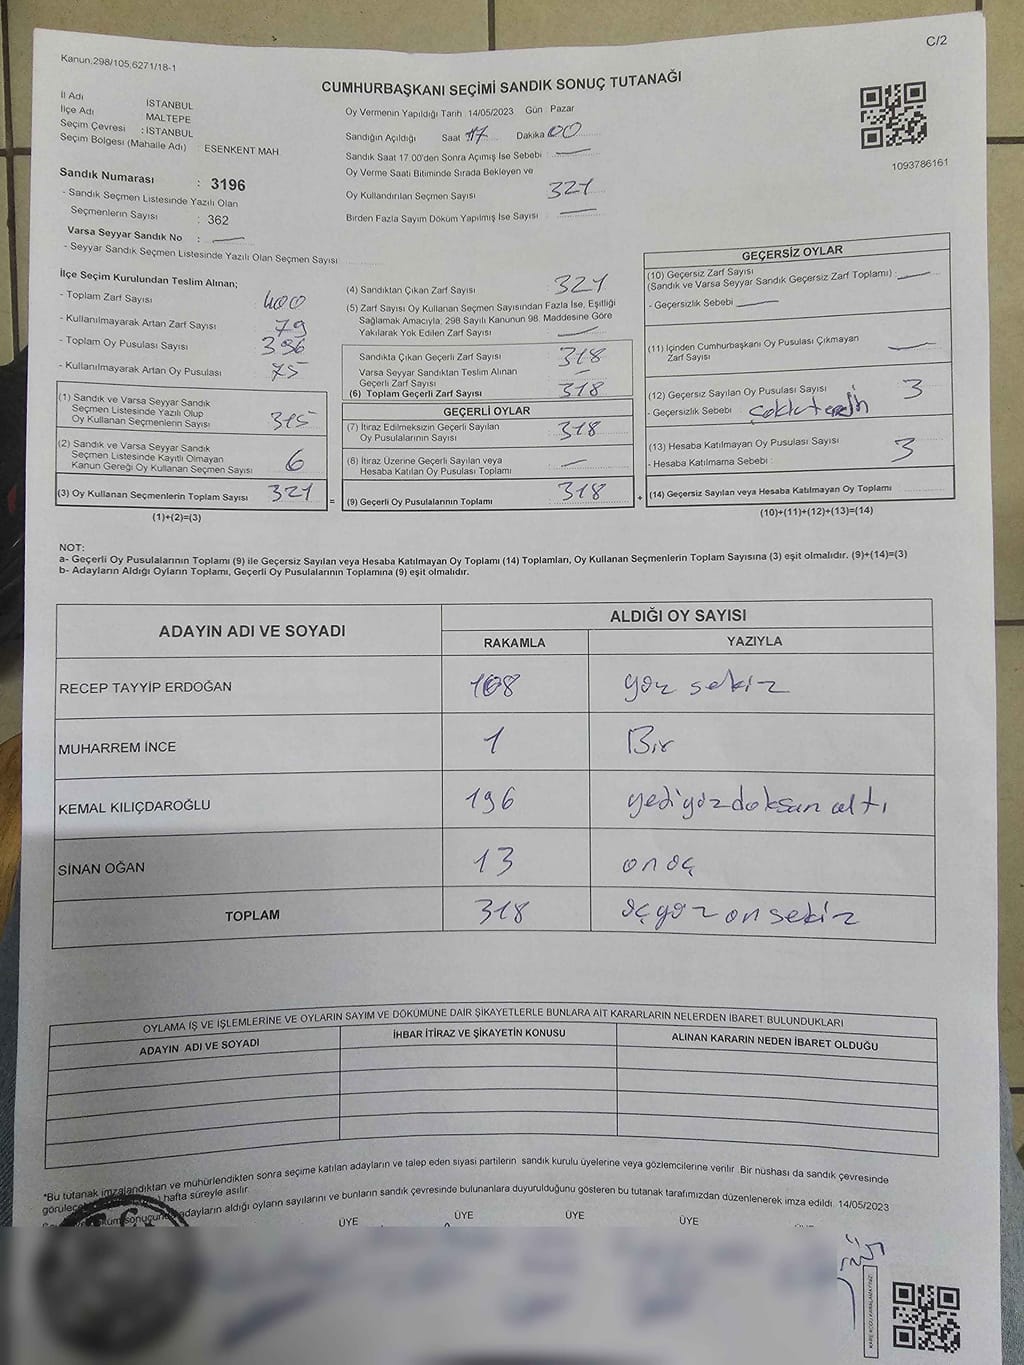 C/2
Kanun.298/105,6271/18-1
CUMHURBAŞKANI SEÇİMİ SANDIK SONUÇ TUTANAĞI
İl Adı : İSTANBUL
İlçe Adı : MALTEPE
Seçim Çevresi : İSTANBUL
Seçim Bölgesi (Mahalle Adı) : ESENKENT MAH.
Sandık Numarası : 3196
- Sandık Seçmen Listesinde Yazılı Olan
Seçmenlerin Sayısı : 362
Varsa Seyyar Sandık No : —
- Seyyar Sandık Seçmen Listesinde Yazılı Olan Seçmen Sayısı
Oy Vermenin Yapıldığı Tarih 14/05/2023 Gün : Pazar
Sandığın Açıldığı Saat 17 Dakika 00
Sandık Saat 17 00'den Sonra Açımış İse Sebebi : —
Oy Verme Saati Bitiminde Sırada Bekleyen ve
Oy Kullandırılan Seçmen Sayısı 321
Birden Fazla Sayım Döküm Yapılmış İse Sayısı : —
1093786161
İlçe Seçim Kurulundan Teslim Alınan;
- Toplam Zarf Sayısı 400
- Kullanılmayarak Artan Zarf Sayısı : 79
- Toplam Oy Pusulası Sayısı : 396
- Kullanılmayarak Artan Oy Pusulası : 75
(1) Sandık ve Varsa Seyyar Sandık
Seçmen Listesinde Yazılı Olup
Oy Kullanan Seçmenlerin Sayısı : 315
(2) Sandık ve Varsa Seyyar Sandık
Seçmen Listesinde Kayıtlı Olmayan
Kanun Gereği Oy Kullanan Seçmen Sayısı : 6
(3) Oy Kullanan Seçmenlerin Toplam Sayısı : 321
(1)+(2)=(3)
=
(4) Sandıktan Çıkan Zarf Sayısı : 321
(5) Zarf Sayısı Oy Kullanan Seçmen Sayısından Fazla İse, Eşitliği
Sağlamak Amacıyla, 298 Sayılı Kanunun 98. Maddesine Göre
Yakılarak Yok Edilen Zarf Sayısı : —
Sandıkta Çıkan Geçerli Zarf Sayısı : 318
Varsa Seyyar Sandıktan Teslim Alınan
Geçerli Zarf Sayısı : —
(6) Toplam Geçerli Zarf Sayısı : 318
GEÇERLİ OYLAR
(7) İtiraz Edilmeksizin Geçerli Sayılan
Oy Pusulalarının Sayısı : 318
(8) İtiraz Üzerine Geçerli Sayılan veya
Hesaba Katılan Oy Pusulası Toplamı : —
(9) Geçerli Oy Pusulalarının Toplamı : 318
+
GEÇERSİZ OYLAR
(10) Geçersiz Zarf Sayısı
(Sandık ve Varsa Seyyar Sandık Geçersiz Zarf Toplamı) : —
- Geçersizlik Sebebi : —
(11) İçinden Cumhurbaşkanı Oy Pusulası Çıkmayan
Zarf Sayısı : —
(12) Geçersiz Sayılan Oy Pusulası Sayısı : 3
- Geçersizlik Sebebi :
(13) Hesaba Katılmayan Oy Pusulası Sayısı : 3
- Hesaba Katılmama Sebebi :
(14) Geçersiz Sayılan veya Hesaba Katılmayan Oy Toplamı
(10)+(11)+(12)+(13)=(14)
NOT:
a- Geçerli Oy Pusulalarının Toplamı (9) ile Geçersiz Sayılan veya Hesaba Katılmayan Oy Toplamı (14) Toplamları, Oy Kullanan Seçmenlerin Toplam Sayısına (3) eşit olmalıdır. (9)+(14)=(3)
b- Adayların Aldığı Oyların Toplamı, Geçerli Oy Pusulalarının Toplamına (9) eşit olmalıdır.
ADAYIN ADI VE SOYADI ALDIĞI OY SAYISI
RAKAMLA YAZIYLA
RECEP TAYYİP ERDOĞAN 108 yüz sekiz
MUHARREM İNCE 1 Bir
KEMAL KILIÇDAROĞLU 196 yediyüzdoksan altı
SİNAN OĞAN 13 on üç
TOPLAM 318 üçyüz on sekiz
OYLAMA İŞ VE İŞLEMLERİNE VE OYLARIN SAYIM VE DÖKÜMÜNE DAİR ŞİKAYETLERLE BUNLARA AİT KARARLARIN NELERDEN İBARET BULUNDUKLARI
ADAYIN ADI VE SOYADI İHBAR İTİRAZ VE ŞİKAYETİN KONUSU ALINAN KARARIN NEDEN İBARET OLDUĞU
*Bu tutanak imzalandıktan ve mühürlendikten sonra seçime katılan adayların ve talep eden siyasi partilerin sandık kurulu üyelerine veya gözlemcilerine verilir. Bir nüshası da sandık çevresinde
hafta süreyle asılır.
adayların aldığı oyların sayılarını ve bunların sandık çevresinde bulunanlara duyurulduğunu gösteren bu tutanak tarafımızdan düzenlenerek imza edildi. 14/05/2023
ÜYE ÜYE ÜYE ÜYE